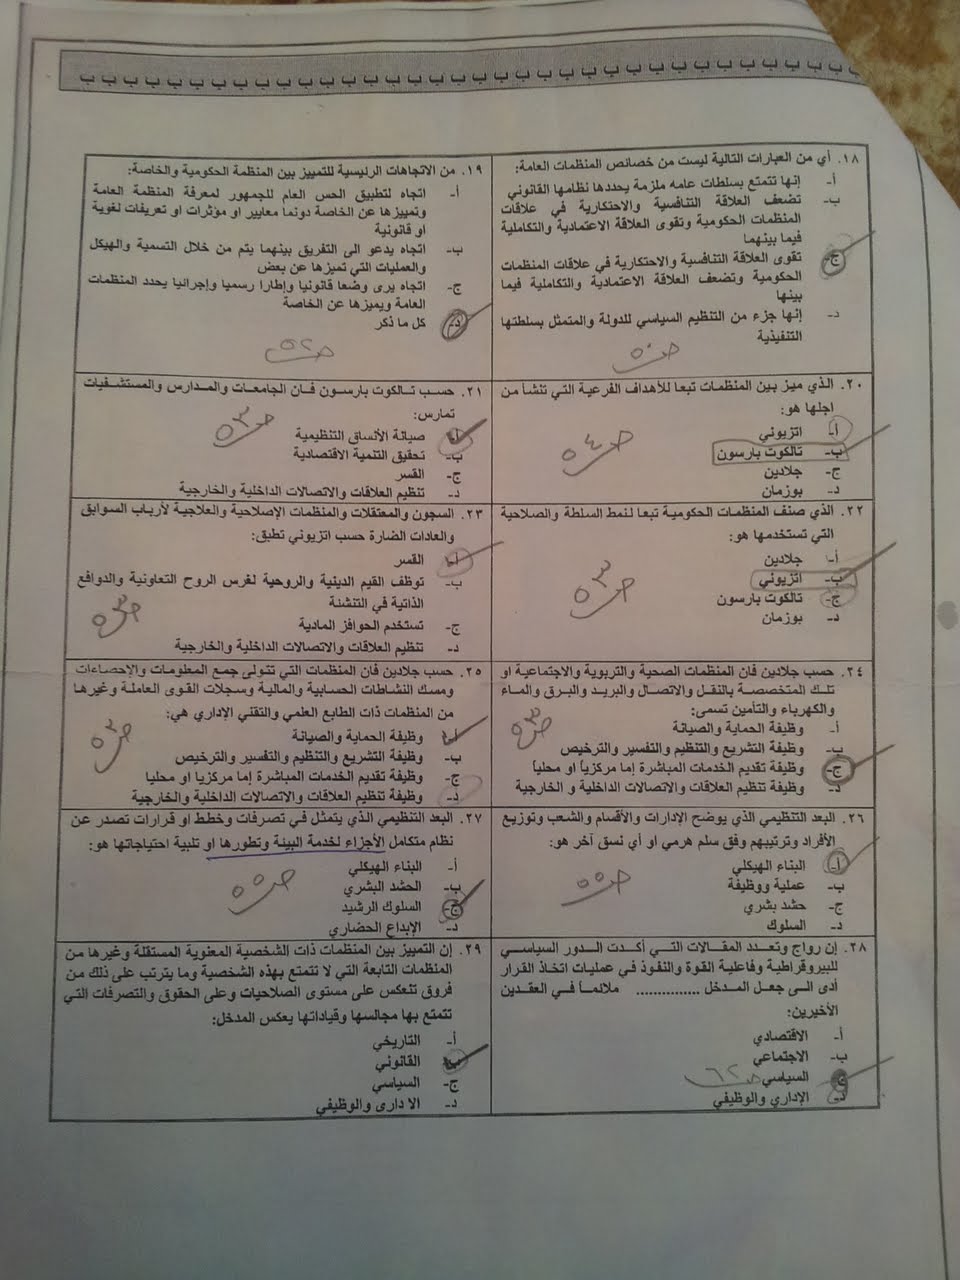 ب ب ب ب ب ب ب ب ب ب ب ب ب ب ب ب ب ب ب ب ب ب ب ب ب ب ب ب ب ب ب ب ب ب
١٨. أي من العبارات التالية ليست من خصائص المنظمات العامة:
أ- إنها تتمتع بسلطات عامه ملزمة يحددها نظامها القانوني
ب- تضعف العلاقة التنافسية والاحتكارية في علاقات
المنظمات الحكومية وتقوى العلاقة الاعتمادية والتكاملية
فيما بينهما
ج- تقوى العلاقة التنافسية والاحتكارية في علاقات المنظمات
الحكومية وتضعف العلاقة الاعتمادية والتكاملية فيما
بينها
د- إنها جزء من التنظيم السياسي للدولة والمتمثل بسلطتها
التنفيذية
ص٥٠
١٩. من الاتجاهات الرئيسية للتمييز بين المنظمة الحكومية والخاصة:
أ- اتجاه لتطبيق الحس العام للجمهور لمعرفة المنظمة العامة
وتمييزها عن الخاصة دونما معايير او مؤثرات او تعريفات لغوية
او قانونية
ب- اتجاه يدعو الى التفريق بينهما يتم من خلال التسمية والهيكل
والعمليات التي تميزها عن بعض
ج- اتجاه يرى وضعا قانونيا وإطارا رسميا وإجرائيا يحدد المنظمات
العامة ويميزها عن الخاصة
د- كل ما ذكر
ص٥٢
٢٠. الذي ميز بين المنظمات تبعا للأهداف الفرعية التي تنشأ من
اجلها هو:
أ- اتزيوني
ب- تالكوت بارسون
ج- جلادين
د- بوزمان
ص٥٤
٢١. حسب تالكوت بارسون فان الجامعات والمدارس والمستشفيات
تمارس:
أ- صيانة الأنساق التنظيمية
ب- تحقيق التنمية الاقتصادية
ج- القسر
د- تنظيم العلاقات والاتصالات الداخلية والخارجية
ص٥٣
٢٢. الذي صنف المنظمات الحكومية تبعا لنمط السلطة والصلاحية
التي تستخدمها هو:
أ- جلادين
ب- اتزيوني
ج- تالكوت بارسون
د- بوزمان
ص٥٣
٢٣. السجون والمعتقلات والمنظمات الإصلاحية والعلاجية لأرباب السوابق
والعادات الضارة حسب اتزيوني تطبق:
أ- القسر
ب- توظف القيم الدينية والروحية لغرس الروح التعاونية والدوافع
الذاتية في التنشئة
ج- تستخدم الحوافز المادية
د- تنظيم العلاقات والاتصالات الداخلية والخارجية
ص٥٣
٢٤. حسب جلادين فان المنظمات الصحية والتربوية والاجتماعية او
تلك المتخصصة بالنقل والاتصال والبريد والبرق والماء
والكهرباء والتأمين تسمى:
أ- وظيفة الحماية والصيانة
ب- وظيفة التشريع والتنظيم والتفسير والترخيص
ج- وظيفة تقديم الخدمات المباشرة إما مركزياً او محلياً
د- وظيفة تنظيم العلاقات والاتصالات الداخلية و الخارجية
ص٥٣
٢٥. حسب جلادين فان المنظمات التي تتولى جمع المعلومات والإحصاءات
ومسك النشاطات الحسابية والمالية وسجلات القوى العاملة وغيرها
من المنظمات ذات الطابع العلمي والتقني الإداري هي:
أ- وظيفة الحماية والصيانة
ب- وظيفة التشريع والتنظيم والتفسير والترخيص
ج- وظيفة تقديم الخدمات المباشرة إما مركزيا او محليا
د- وظيفة تنظيم العلاقات والاتصالات الداخلية والخارجية
ص٥٣
٢٦. البعد التنظيمي الذي يوضح الإدارات والأقسام والشعب وتوزيع
الأفراد وترتيبهم وفق سلم هرمي أو أي نسق آخر هو:
أ- البناء الهيكلي
ب- عملية ووظيفة
ج- حشد بشري
د- السلوك
ص٥٥
٢٧. البعد التنظيمي الذي يتمثل في تصرفات وخطط او قرارات تصدر عن
نظام متكامل الأجزاء لخدمة البيئة وتطورها او تلبية احتياجاتها هو:
أ- البناء الهيكلي
ب- الحشد البشري
ج- السلوك الرشيد
د- الإبداع الحضاري
ص٥٥
٢٨. إن رواج وتعدد المقالات التي أكدت الدور السياسي
للبيروقراطية وفاعلية القوة والنفوذ في عمليات اتخاذ القرار
أدى الى جعل المدخل ............... ملائماً في العقدين
الأخيرين:
أ- الاقتصادي
ب- الاجتماعي
ج- السياسي
د- الإداري والوظيفي
ص٦٢
٢٩. إن التمييز بين المنظمات ذات الشخصية المعنوية المستقلة وغيرها من
المنظمات التابعة التي لا تتمتع بهذه الشخصية وما يترتب على ذلك من
فروق تنعكس على مستوى الصلاحيات وعلى الحقوق والتصرفات التي
تتمتع بها مجالسها وقياداتها يعكس المدخل:
أ- التاريخي
ب- القانوني
ج- السياسي
د- الادارى والوظيفي